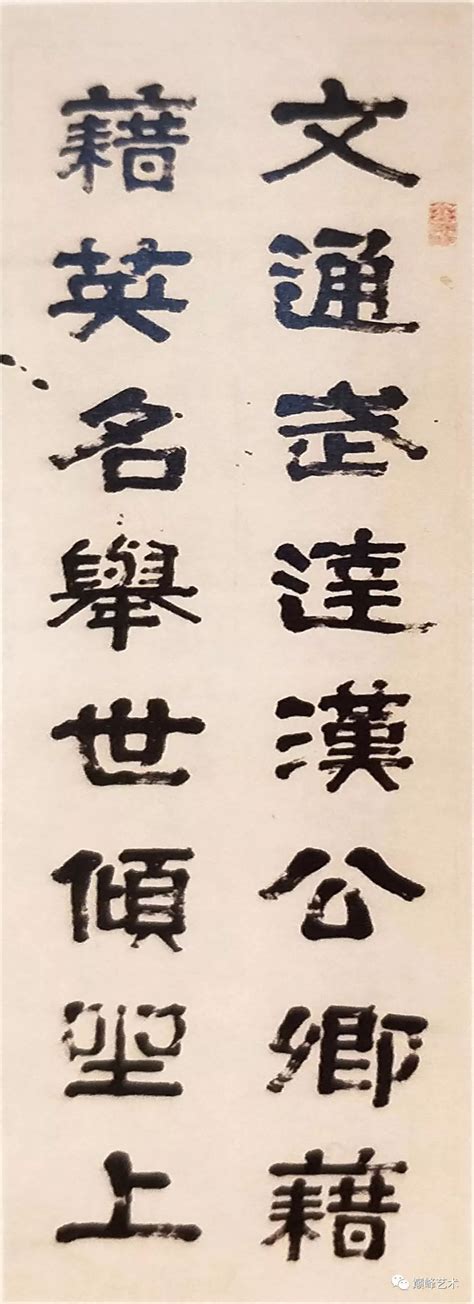 文通武達漢公卿藉
藉英名舉世傾坐上
巅峰艺术